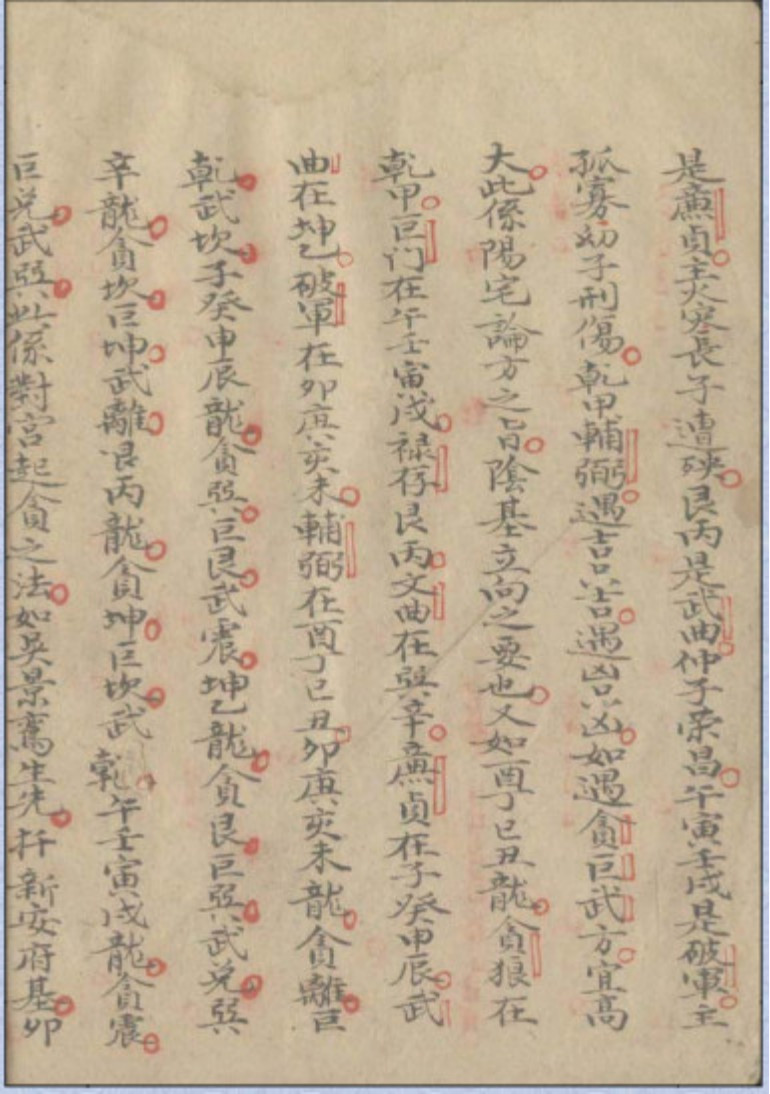 是廉貞主火灾長子遭殃艮丙是武曲仲子荣昌午寅壬戌是破軍主
孤寡幼子刑傷乾甲輔弼遇吉只吉遇凶只凶如遇貪巨武方宜高
大此係陽宅論方之旨陰基立向之要也又如酉丁巳丑龍貪狼在
乾甲巨门在午壬寅戌禄存艮丙文曲在巽辛廉貞在子癸申辰武
曲在坤乙破軍在卯庚亥未輔弼在酉丁巳丑卯庚亥未龍貪離巨
乾武坎子癸申辰龍貪巽巨艮武震坤乙龍貪艮巨巽武兑巽
辛龍貪坎巨坤武離艮丙龍貪坤巨坎武乾午壬寅戌龍貪震
巨兑武巽此係對宮起貪之法如吳景鸞生先扦新安府基卯